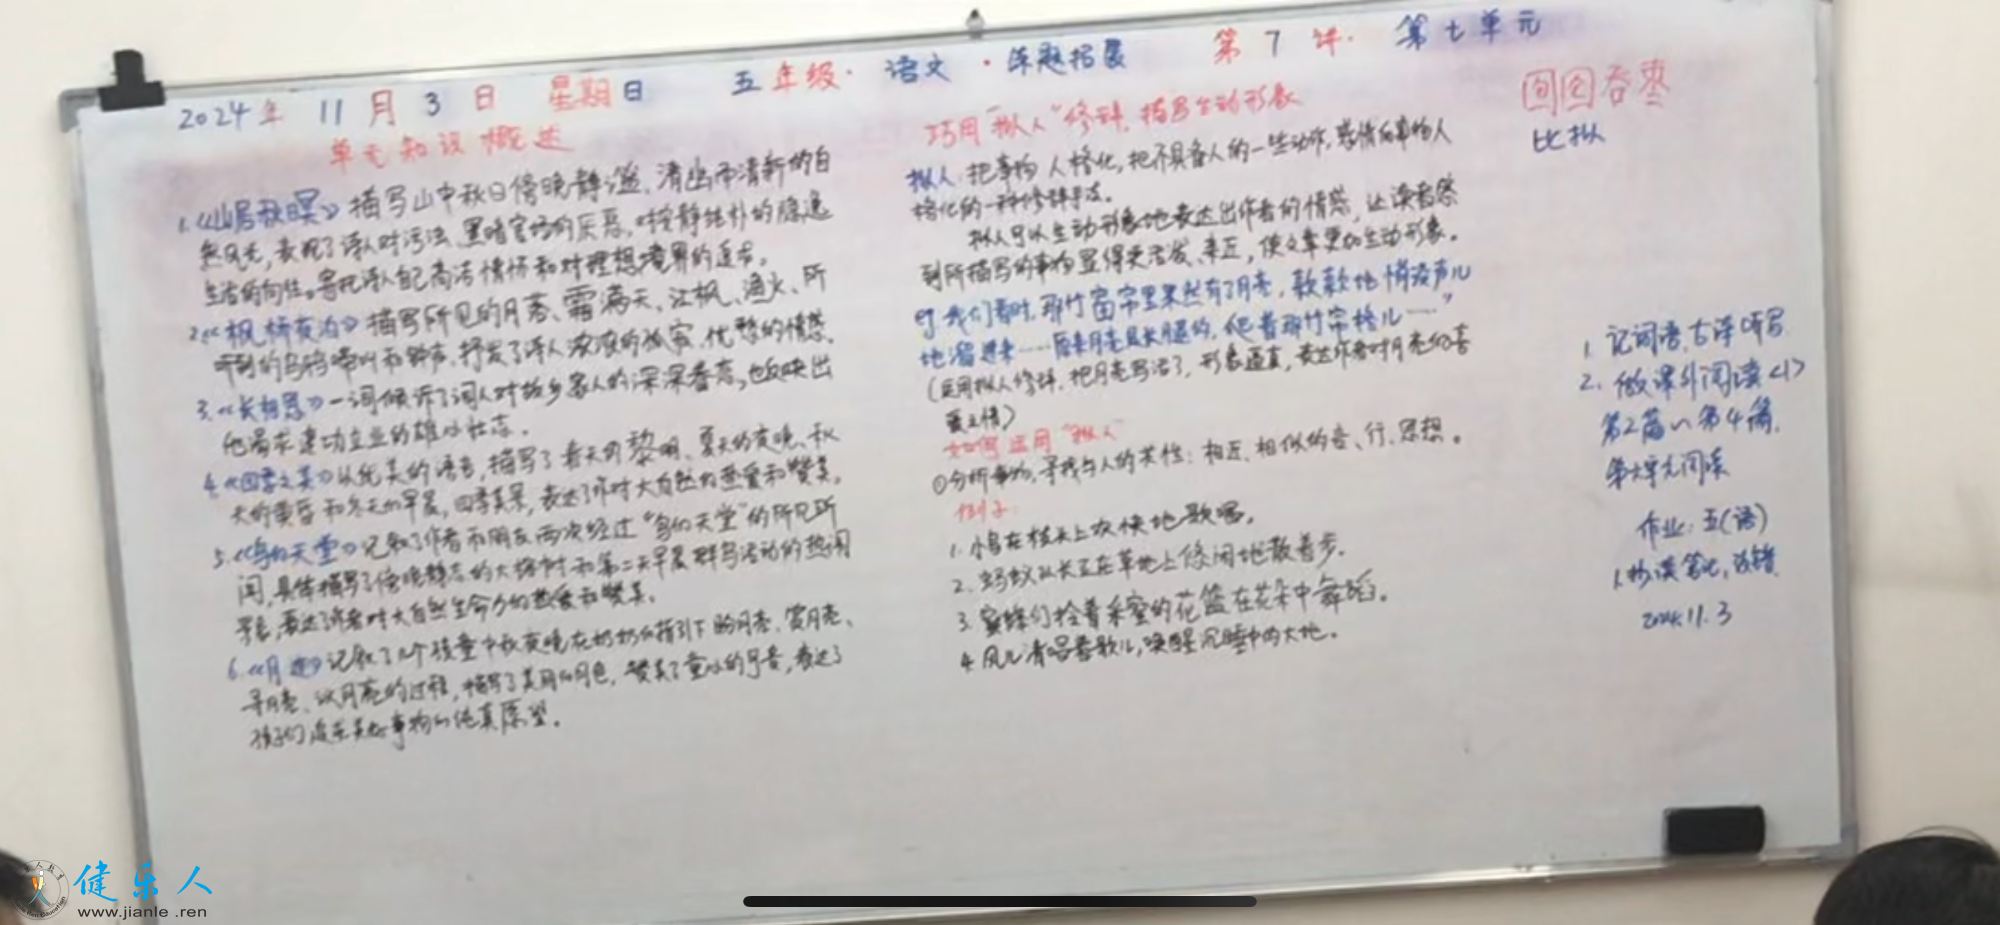 2024年 11月3日 星期日 五年级·语文·课题拓展 第7讲·第七单元
单元知识概述
1.《山居秋暝》描写山中秋日傍晚静谧、清幽而清新的自
然风光,表现了诗人对污浊、黑暗官场的厌恶,对按静纯朴的隐逸
生活的向往。寄托诗人自己高洁情怀和对理想境界的追求。
2.《枫桥夜泊》描写所见的月落、霜满天、江枫、渔火、所
听到的乌鸦啼叫和钟声,抒发了诗人浓浓的孤寂、忧愁的情感。
3.《长相思》一词倾诉了词人对故乡家人的深深眷恋,也反映出
他渴求建功立业的雄心壮志。
4.《四季之美》以优美的语言,描写了春天的黎明、夏天的夜晚、秋
天的黄昏和冬天的早晨,四季美景,表达了作对大自然的热爱和赞美。
5.《鸟的天堂》记叙了作者和朋友两次经过“鸟的天堂”的所见所
闻,具体描写了傍晚静态的大榕树和第二天早晨群鸟活动的热闹
景象,表达了作者对大自然生命力的热爱和赞美。
6.《月迹》记叙了几个孩童中秋夜晚在奶奶的指引下盼月亮、赏月亮、
寻月亮、议月亮的过程,描写了美丽的月色,赞美了童心的可贵,表达了
孩子们追求美好事物的纯真愿望。
巧用“拟人”修辞,描写生动形象
拟人:把事物人格化,把不具备人的一些动作,感情的事物人
格化的一种修辞手法。
拟人可以生动形象地表达出作者的情感,让读者感
到所描写的事物显得更活泼、亲近,使文章更加生动形象。
我们看时,那竹窗帘里果然有了月亮,款款地悄没声儿
地溜进来……原来月亮是长腿的,爬着那竹帘格儿……”
(运用拟人修辞,把月亮写活了,形象逼真,表达作者对月亮的喜
爱之情)
如何运用“拟人”
①分析事物,寻找与人的共性:相近、相似的音、行、思想。
例子:
1.小鸟在枝头上欢快地歌唱。
2.蚂蚁队长正在草地上悠闲地散着步。
3.蜜蜂们拎着采蜜的花篮在花朵中舞蹈。
4.风儿清唱着歌儿,唤醒沉睡中的大地。
囫囵吞枣
比拟
1.记词语、古诗听写
2.做课外阅读<1>
第2篇~第4篇.
第七单元阅读
作业:五(语)
1.抄读笔记,改错.
2024.11.3
健乐人
www.jianle.ren